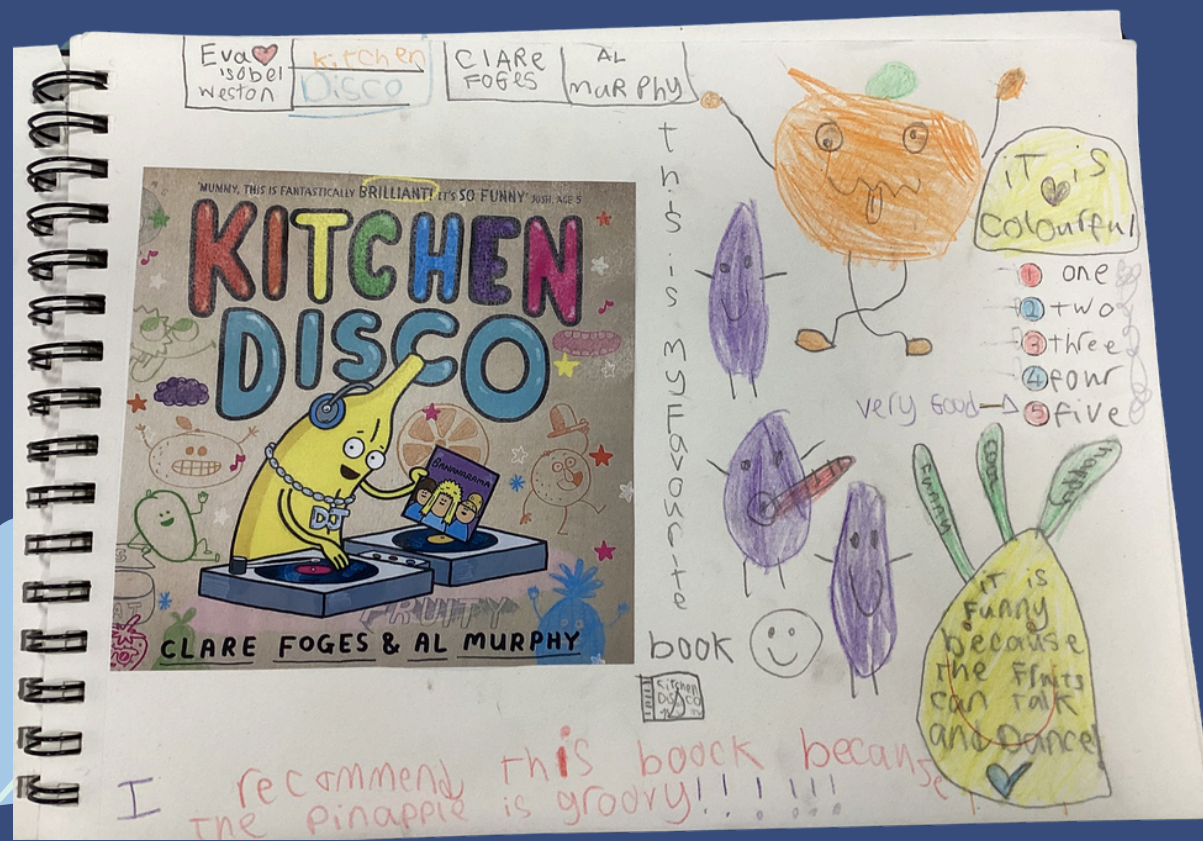 Eva
isobel
weston
kitchen
Disco
CLARE
FOGES
AL
MURPhy
'MUMMY, THIS IS FANTASTICALLY BRILLIANT! IT'S SO FUNNY' JOSH, AGE 5
KITCHEN
DISCO
BANANARAMA
DOT
FRUITY
CLARE FOGES & AL MURPHY
this is my Favourite
book
Kitchen
Disco
iT is
Colourful
1 one
2 two
3 three
4 four
very Good 5 five
Funny
cool
happy
iT is
Funny
because
The Fruits
can Talk
and Dance
I recommend this boock because
The pinapple is groovy!!!!!!